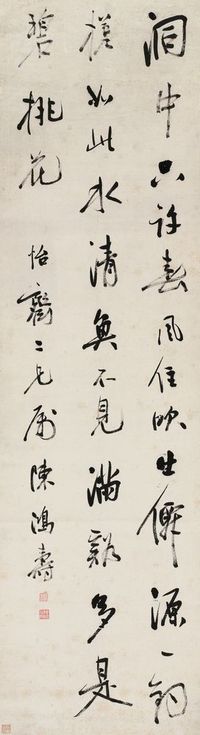 洞中只許春風住吹出僊源一釣
槎如此水清魚不見滿谿多是
碧桃花 怡齋二兄属陳鴻壽